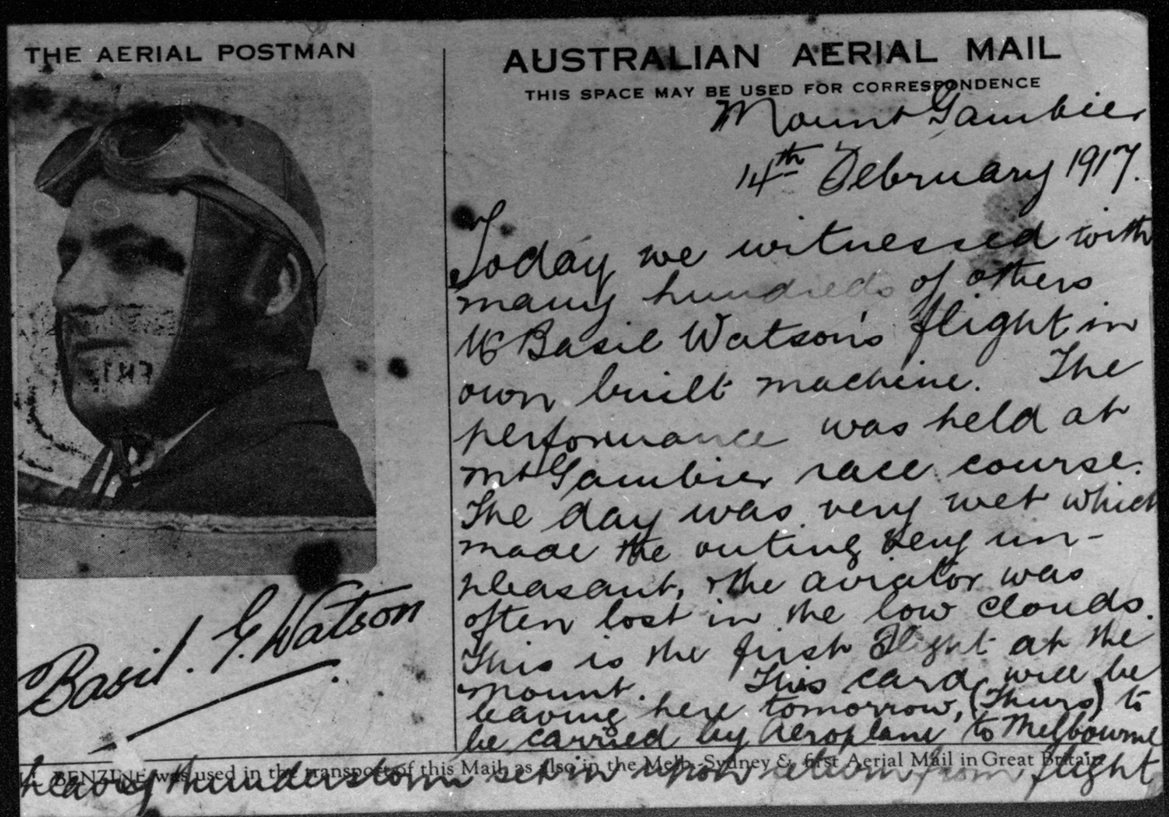 THE AERIAL POSTMAN
Basil. G. Watson
AUSTRALIAN AERIAL MAIL
THIS SPACE MAY BE USED FOR CORRESPONDENCE
Mount Gambier
14th February 1917.
Today we witnessed with
many hundreds of others
Mr Basil Watson's flight in
own built machine. The
performance was held at
Mt Gambier race course.
The day was very wet which
made the outing very un-
pleasant, & the aviator was
often lost in the low clouds.
This is the first flight at the
Mount. This card will be
leaving here tomorrow, (Thurs) to
be carried by Aeroplane to Melbourne
BENZINE was used in the transport of this Mail, as also in the Melb.-Sydney & first Aerial Mail in Great Britain
heavy thunderstorm set in upon return from flight